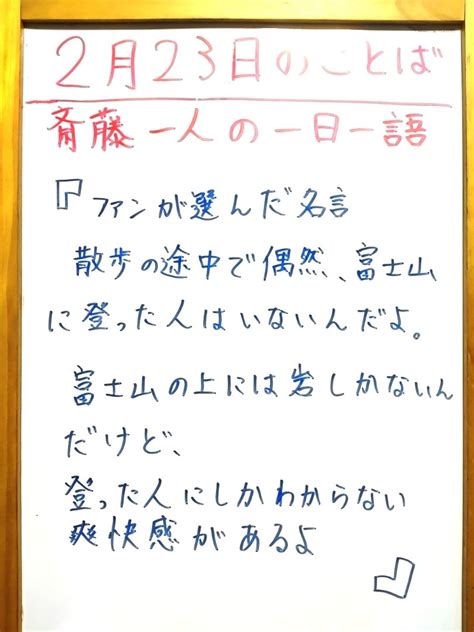 2月23日のことば
斎藤一人の一日一語
『ファンが選んだ名言
散歩の途中で偶然、富士山
に登った人はいないんだよ。
富士山の上には岩しかないん
だけど、
登った人にしかわからない
爽快感があるよ
』